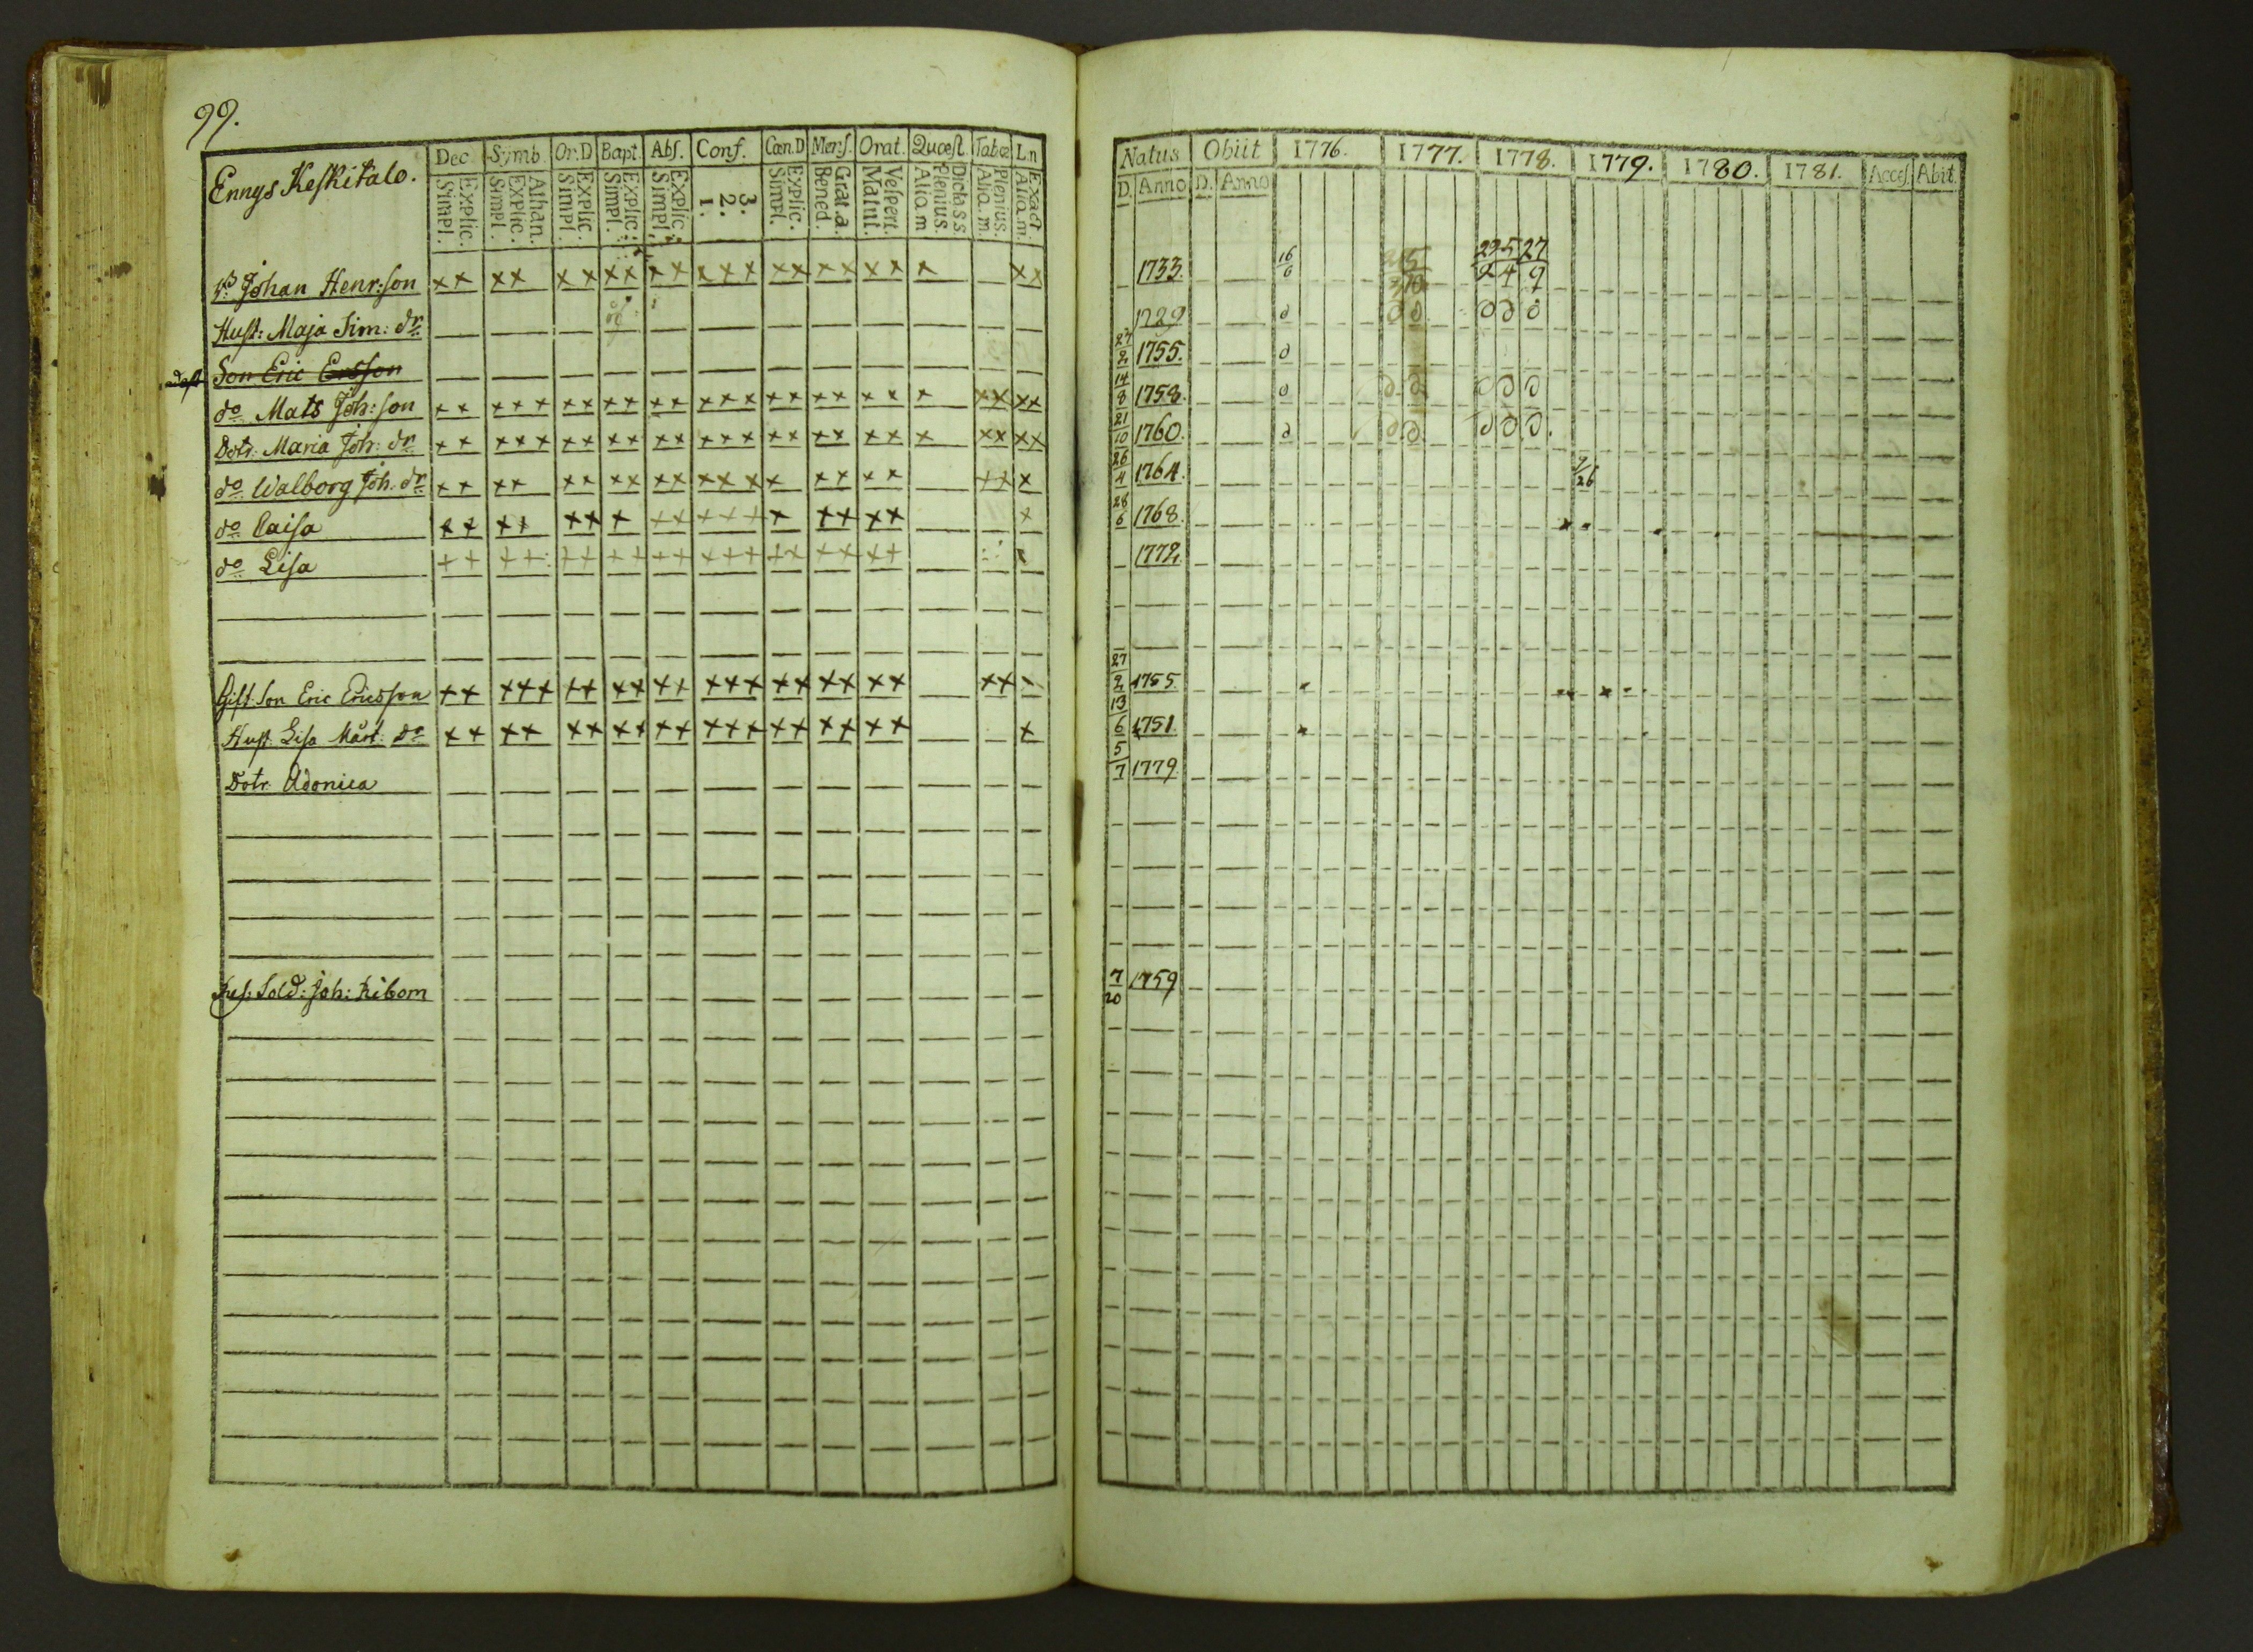 99.
Ennys Keskitalo.
Dec. Symb. Or.D Bapt. Abs. Conf. Cœn.D Mens. Orat. Quæst. Tabœ L.n
Explic. Simpl. Athan. Explic. Simpl. Explic. Simpl. Explic. Simpl. Explic. Simpl. 3. 2. 1. Explic. Simpl. Grat. a. Bened. Vespert. Matut. Dicta S S. Plenius. Aliq. m Plenius. Aliq. m. Exact Aliq. m.
Natus Obiit 1776. 1777. 1778. 1779. 1780. 1781. Access. Abit.
D. Anno D. Anno
Johan Henr:son xx xx xx xx xx xxx xx xx xx x xx 1733. 16/6 295 27 249
Hust: Maja Sim: dr 1729
Son Eric Ersson 27/2 1755.
do Mats Joh:son xx xxx xx xx xx xxx xx xx xx x xx xx 14/8 1758.
Dotr: Maria Joh: dr xx xxx xx xx xx xxx xx xx xx x xx xx 21/10 1760.
do Walborg Joh. dr xx xx xx xx xx xxx x xx xx xx x 26/4 1764. 7/26
do Caisa xx xx xx x xx xxx x xx xx x 28/6 1768.
do Lisa xx xx xx xx xx xxx xx xx xx 1772.
Gift Son Eric Ericsson xx xxx xx xx xx xxx xx xx xx xx x 27/2 1755.
Hust. Lisa Mårt: dr xx xx xx xx xx xxx xx xx xx x 13/6 1751.
Dotr. Adonica 5/7 1779.
Res: Sold: Joh: Kibom 7/20 1759